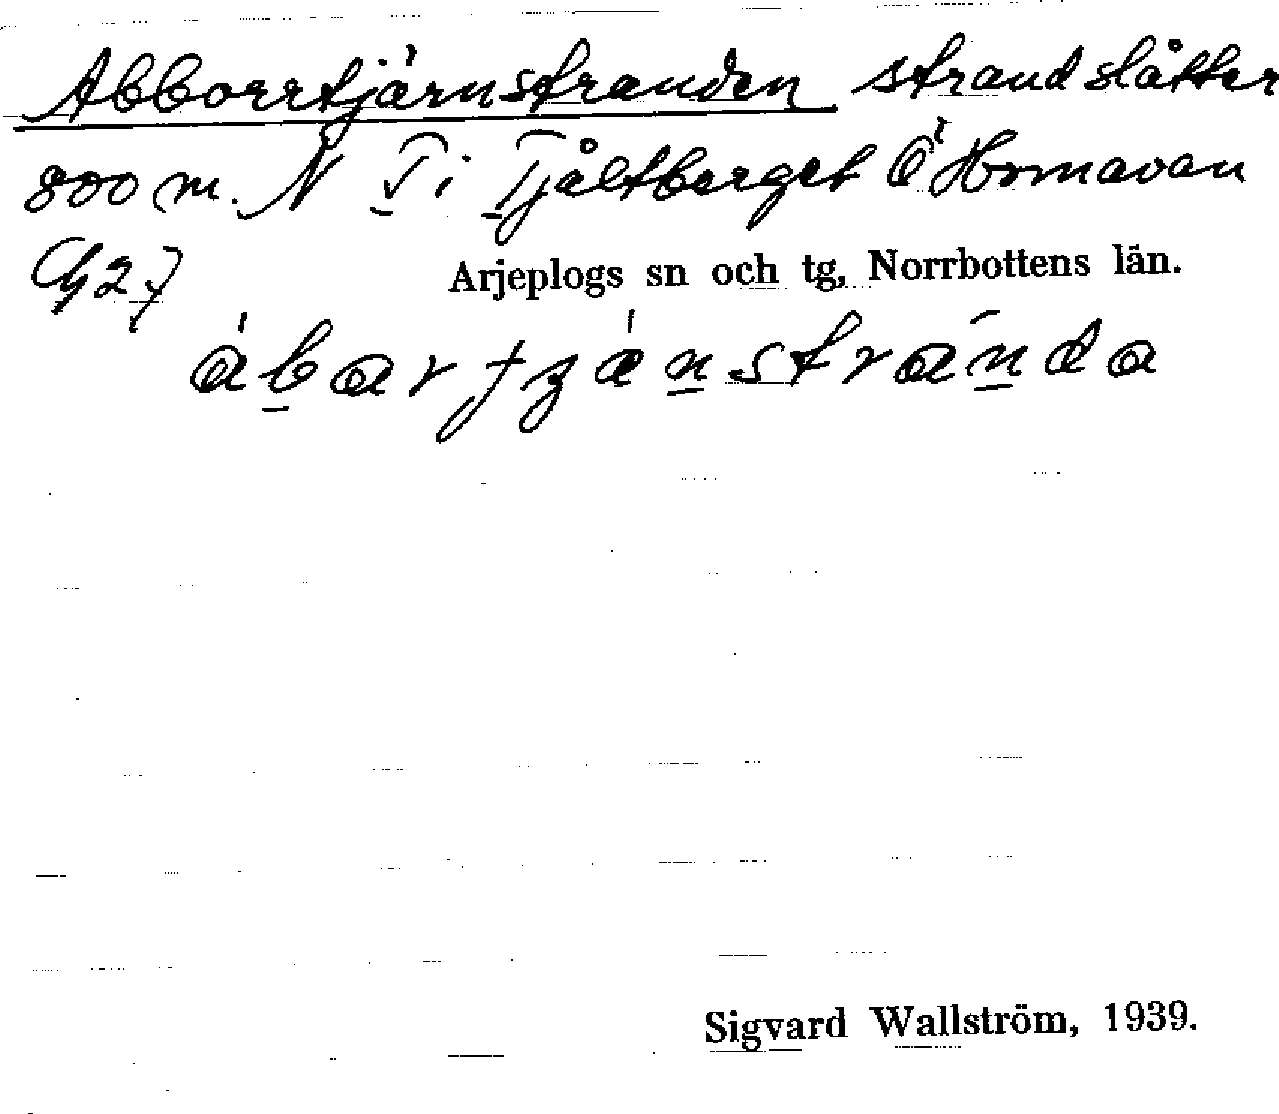 Abborrtjärnstranden strandslåtter
800 m. N Ti Tjåltberget Ö Hornavan
G27
Arjeplogs sn och tg, Norrbottens län.
àbartjánstránda
Sigvard Wallström, 1939.